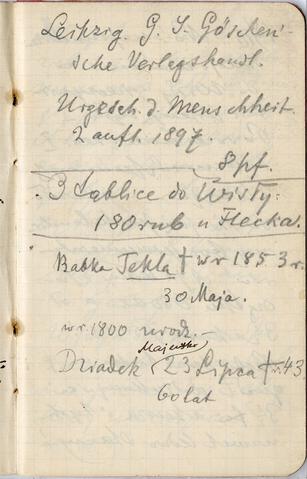 Leipzig. G. J. Göschen'-
sche Verlagshandl.
Urgesch. d. Menschheit.
2 aufl. 1897.
8 pf.
3 tablice do Wisły.
180 rub u Flecka.
Babka Tekla † w r 1853 r.
30 Maja.
w r. 1800 urodz.
Majewski
Dziadek (23 Lipca † r. 43
60 lat